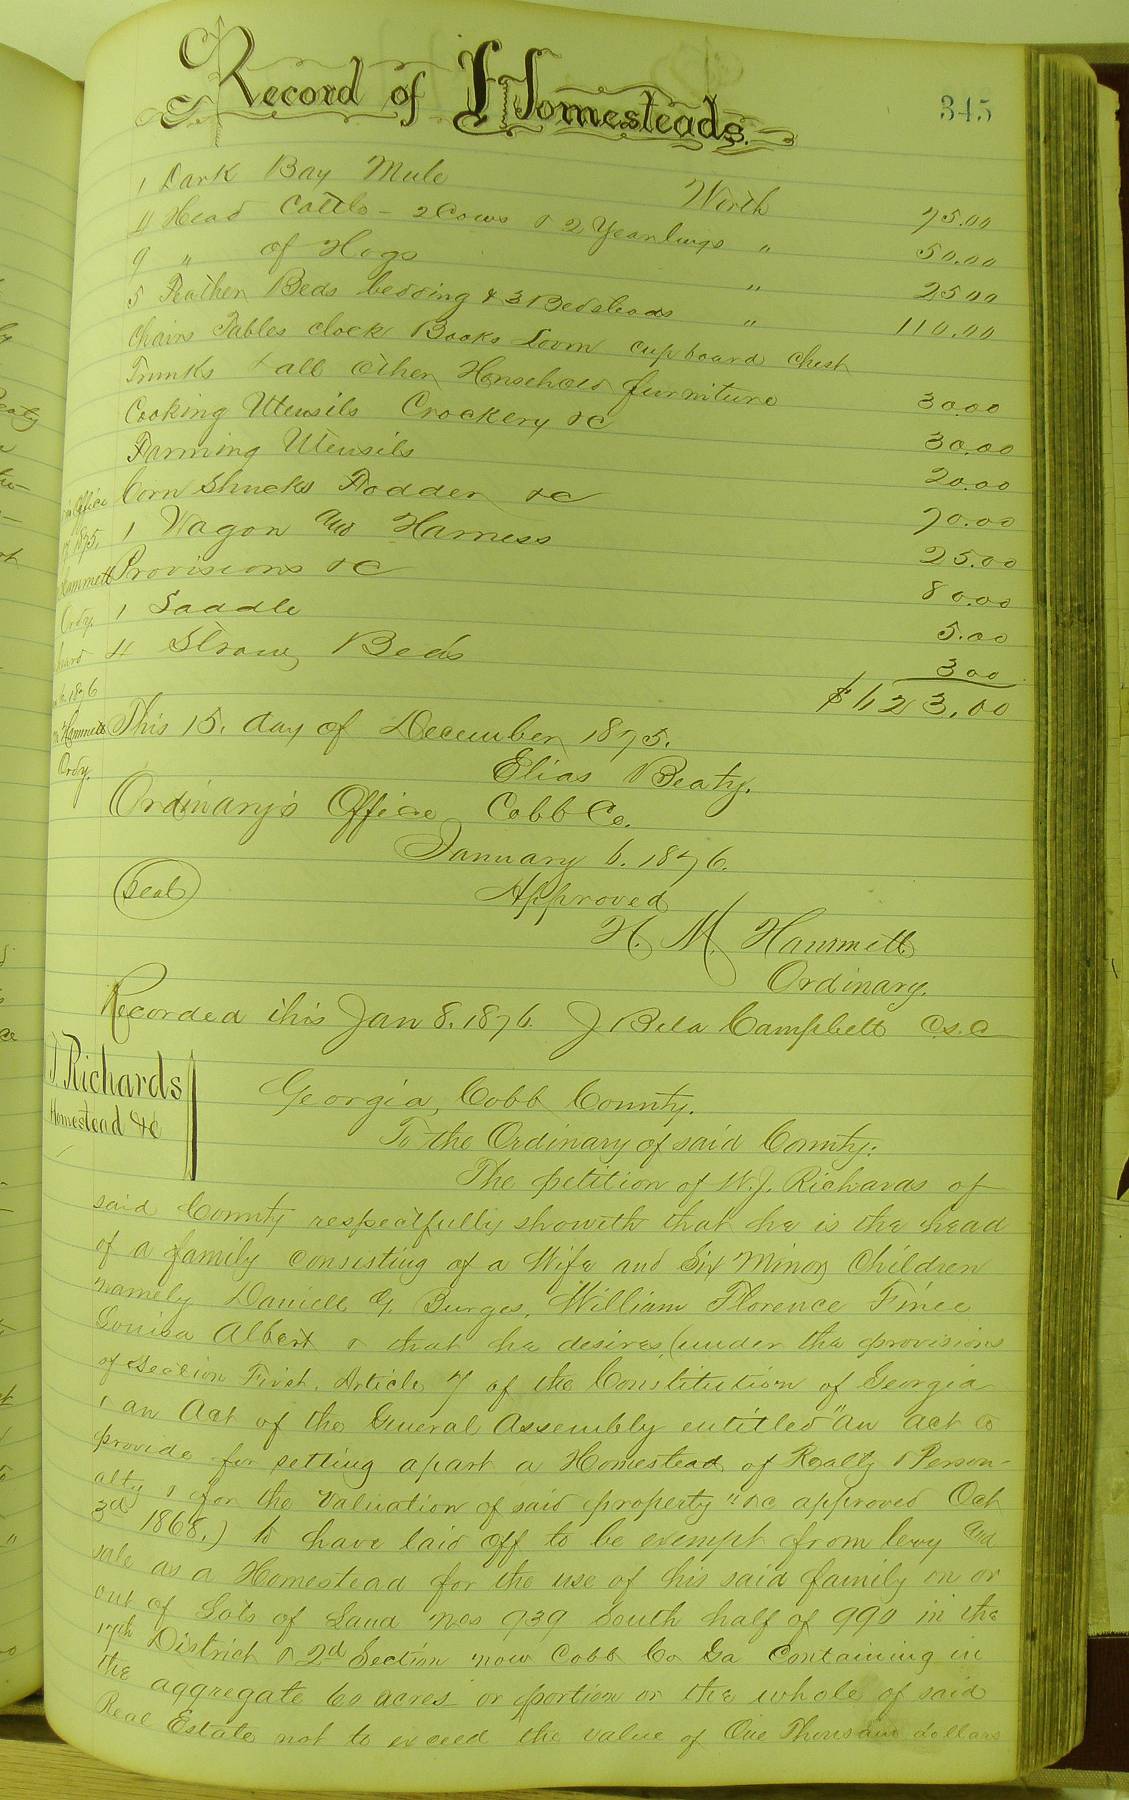 Record of Homesteads.
345
1 Dark Bay Mule Worth 75.00
4 Head Cattle - 2 Cows & 2 Yearlings " 50.00
9 " of Hogs " 25 00
5 Feather Beds bedding & 3 Bedsteads " 110.00
Chairs Tables clock Books Loom cupboard chest
Trunks & all other Household furniture 30.00
Cooking Utensils Crockery &c 30.00
Farming Utensils 20.00
Corn Shucks Fodder &c 70.00
1 Wagon and Harness 25.00
Provisions &c 80.00
1 Saddle 5.00
4 Straw Beds 3 00
$623.00
Office
1875.
Hammett
Ordy.
1876
Hammett
Ordy.
This 15. day of December 1875.
Elias Beaty.
Ordinary's Office Cobb Co.
January 6. 1876.
Seal
Approved
H. M. Hammett
Ordinary.
Recorded this Jan 8. 1876. J Bela Campbell C.S.C
J. Richards
Homestead &c
Georgia, Cobb County.
To the Ordinary of said County:
The petition of W. J. Richards of
said County respectfully showeth that he is the head
of a family consisting of a Wife and Six Minor Children
namely Daniell G. Burges, William Florence Fince
Louisa Albert & that he desires, (under the provisions
of Section First. Article 7 of the Constitution of Georgia
& an Act of the General Assembly entitled "an act to
provide for setting apart a Homestead of Realty & Person-
alty & for the valuation of said property" &c approved Oct
3rd 1868.) to have laid off to be exempt from levy and
sale as a Homestead for the use of his said family on or
out of Lots of Land Nos 939 South half of 990 in the
17th District & 2d Section now Cobb Co Ga Containing in
the aggregate 60 acres or portion or the whole of said
Real Estate not to exceed the value of One Thousand dollars